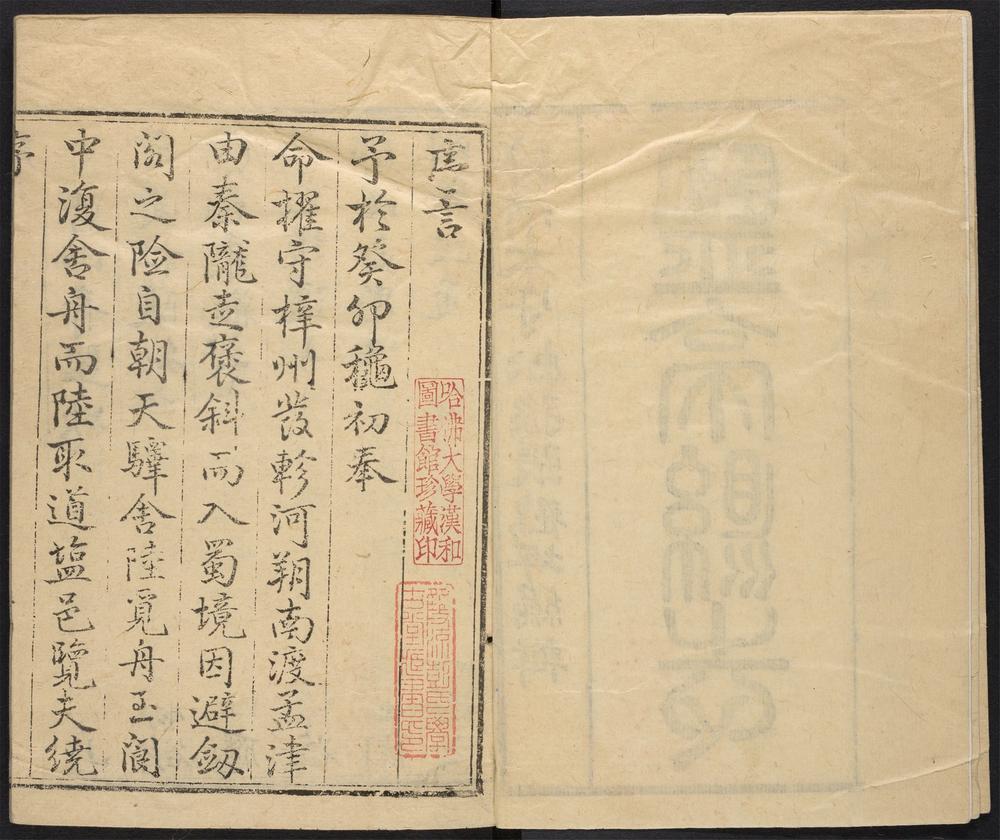 予於癸卯龝初奉
命擢守梓州發軫河朔南渡孟津
由秦隴走褒斜而入蜀境因避劔
閣之險自朝天驛舍陸覓舟至閬
中復舍舟而陸取道塩邑覽夫繞
序
哈佛大學漢和
圖書館珍藏印